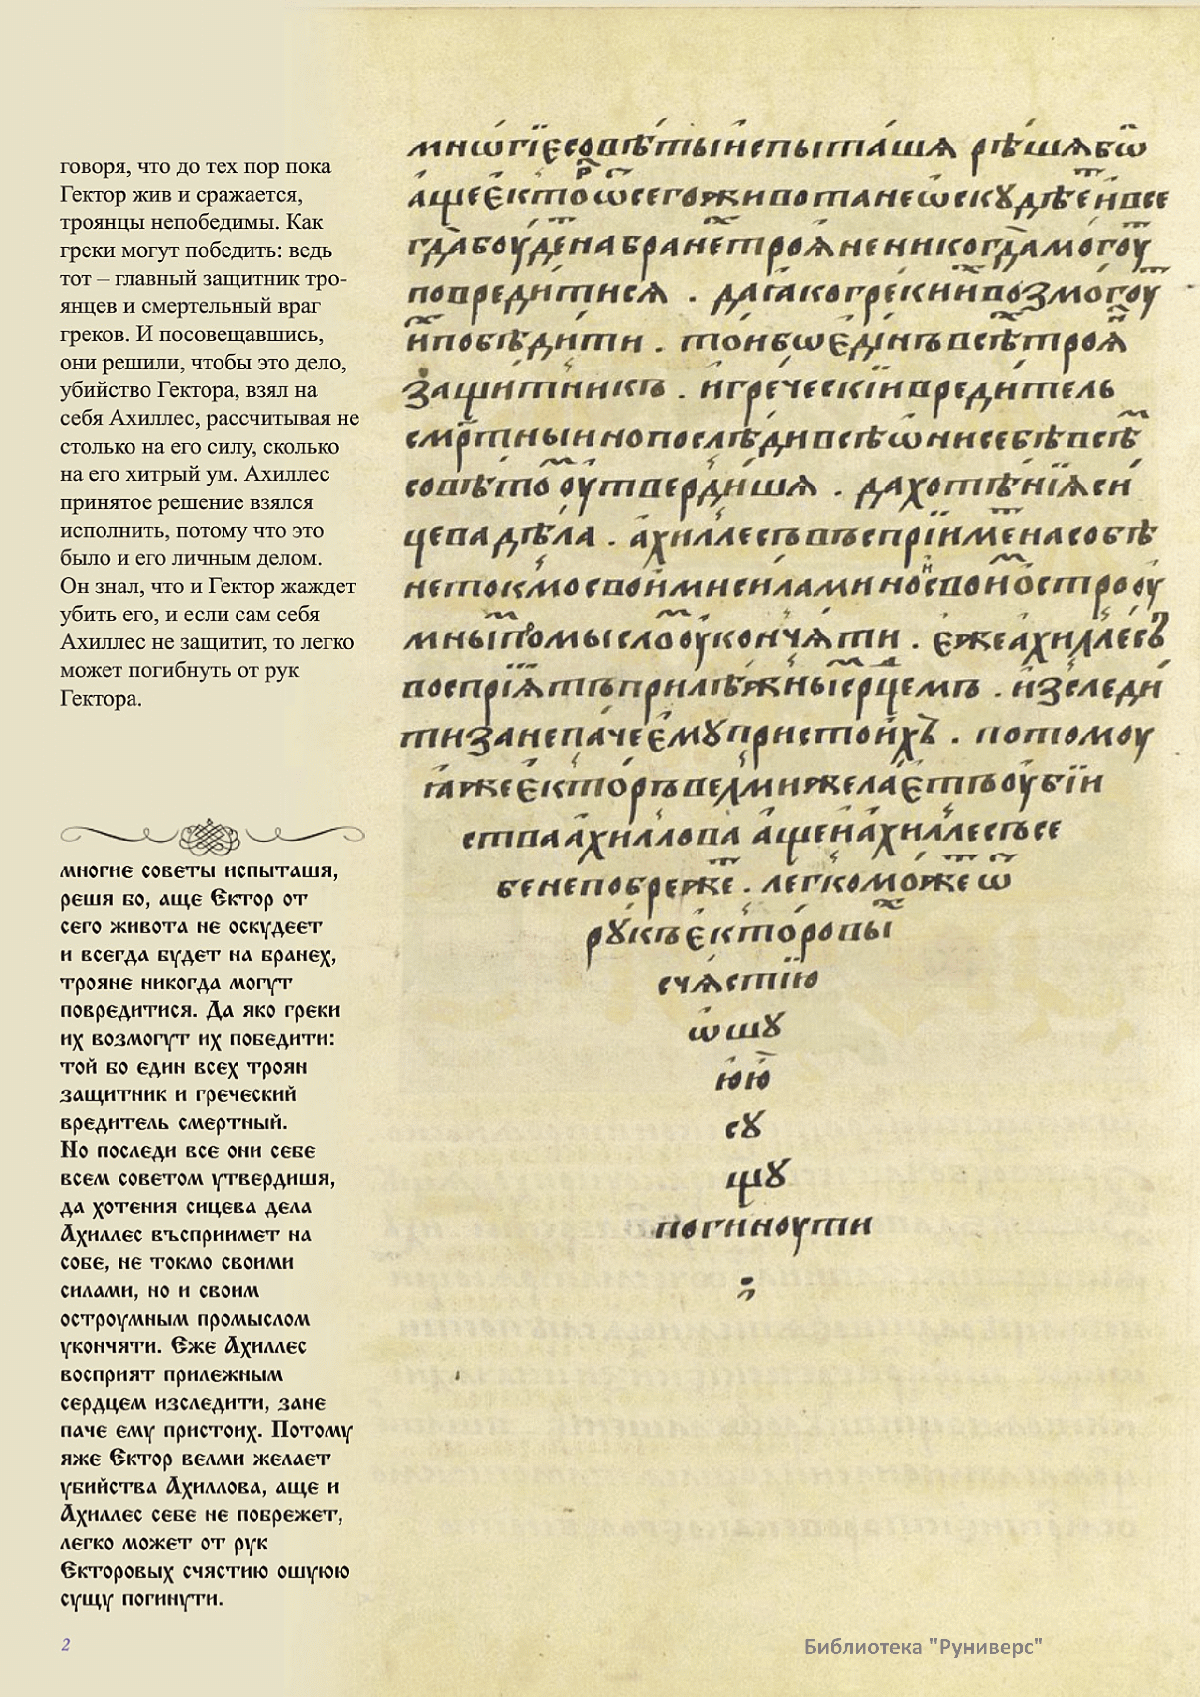 говоря, что до тех пор пока
Гектор жив и сражается,
троянцы непобедимы. Как
грски могут победить: ведь
тот – главный защитник тро-
янцев и смертельный враг
греков. И посовещавшись,
они решили, чтобы это дело,
убийство Гектора, взял на
себя Ахиллес, рассчитывая не
столько на его силу, сколько
на его хитрый ум. Ахиллес
принятое решение взялся
исполнить, потому что это
было и его личным делом.
Он знал, что и Гектор жаждет
убить его, и если сам себя
Ахиллес не защитит, то легко
может погибнуть от рук
Гектора.
многие советы испыташя,
решя бо, аще Єктор от
сего живота не оскудеет
и всегда будет на бранех,
трояне никогда могут
повредитися. Да яко греки
их возмогут их победити:
той бо един всех троян
защитник и греческий
вредитель смертный.
Но последи все они себе
всем советом утвердишя,
да хотения сицева дела
Ахиллес въсприимет на
собе, не токмо своими
силами, но и своим
остроумным промыслом
укончяти. Єже Ахиллес
восприят прилежным
сердцем изследити, зане
паче ему пристоих. Потому
яже Єктор велми желает
убийства Ахиллова, аще и
Ахиллес себе не побрежет,
легко может от рук
Єкторовых счястию ошуюю
сущу погинути.
мнѡгїє совѣты испыташѧ рѣшѧ бѡ
аще єкторъ ѿ сего живота не ѡскудѣе и все
гда боуде на бране трояне никогда могоу
повредитисѧ . да ꙗко греки и возмогоу
и побѣдити . тои бѡ єдинъ всѣ троя
защитникъ . и греческїи вредитель
смртныи но послѣди всѣ ѡни себѣ всѣ
совѣто оутвердишѧ . да хотѣнїѧ си
цева дѣла . ахиллесъ въспрїиме на собѣ
не токмо своими силами но и свои остроу
мны промысло оукончѧти . єже ахиллесъ
воспрїѧтъ прилѣжны срцемъ . изследи
ти зане паче ємꙋ пристоихъ . потомоу
ꙗже єкторъ велми желаєтъ оубїи
ства ахиллова аще и ахиллесъ се
бе не побреже . легко може ѿ
рꙋкъ єкторовы
счѧстїю
ѡшꙋ
юю
сꙋ
щꙋ
погиноути
;
2
Библиотека "Руниверс"